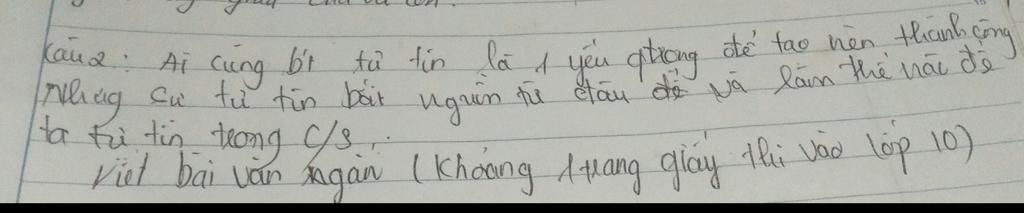 Câu 2: Ai cũng bt tự tin là 1 yếu qtrọng để tạo nên thành công
Nhưng sự tự tin bắt nguồn từ đâu và làm thế nào để
ta tự tin trong c/s.
Viết bài văn ngắn (khoảng 1 trang giấy thi vào lớp 10)